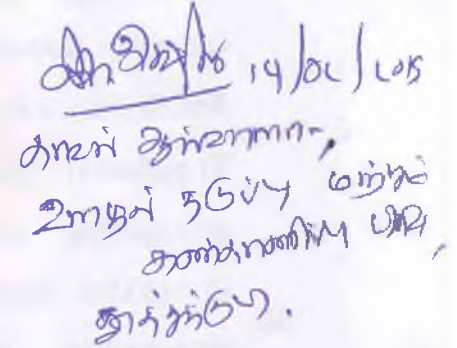 14/02/2015
காவல் ஆய்வாளர்,
ஊழல் தடுப்பு மற்றும்
கண்காணிப்பு பிரிவு,
தூத்துக்குடி.